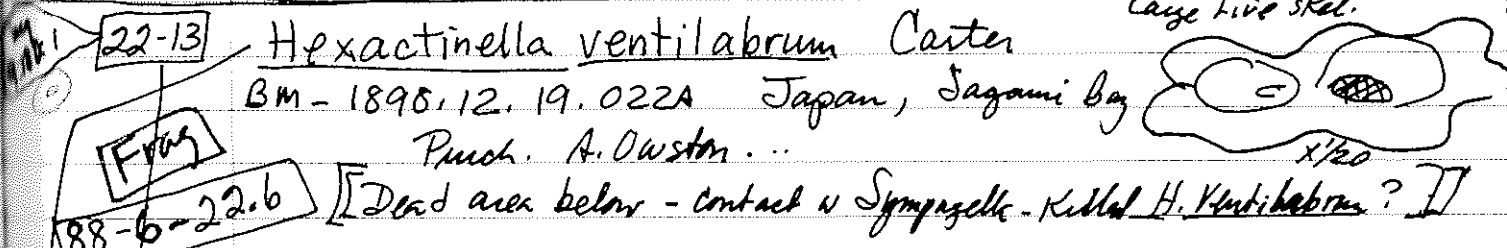 Large Live skel.
22-13 Hexactinella ventilabrum Carter
BM - 1898.12.19.022A Japan, Sagami Bay
Frag
Purch. A. Owston...
x 1/20
88-6-22.6 [[Dead area below - contact w Sympagella - Killed H. ventilabrum? ]]